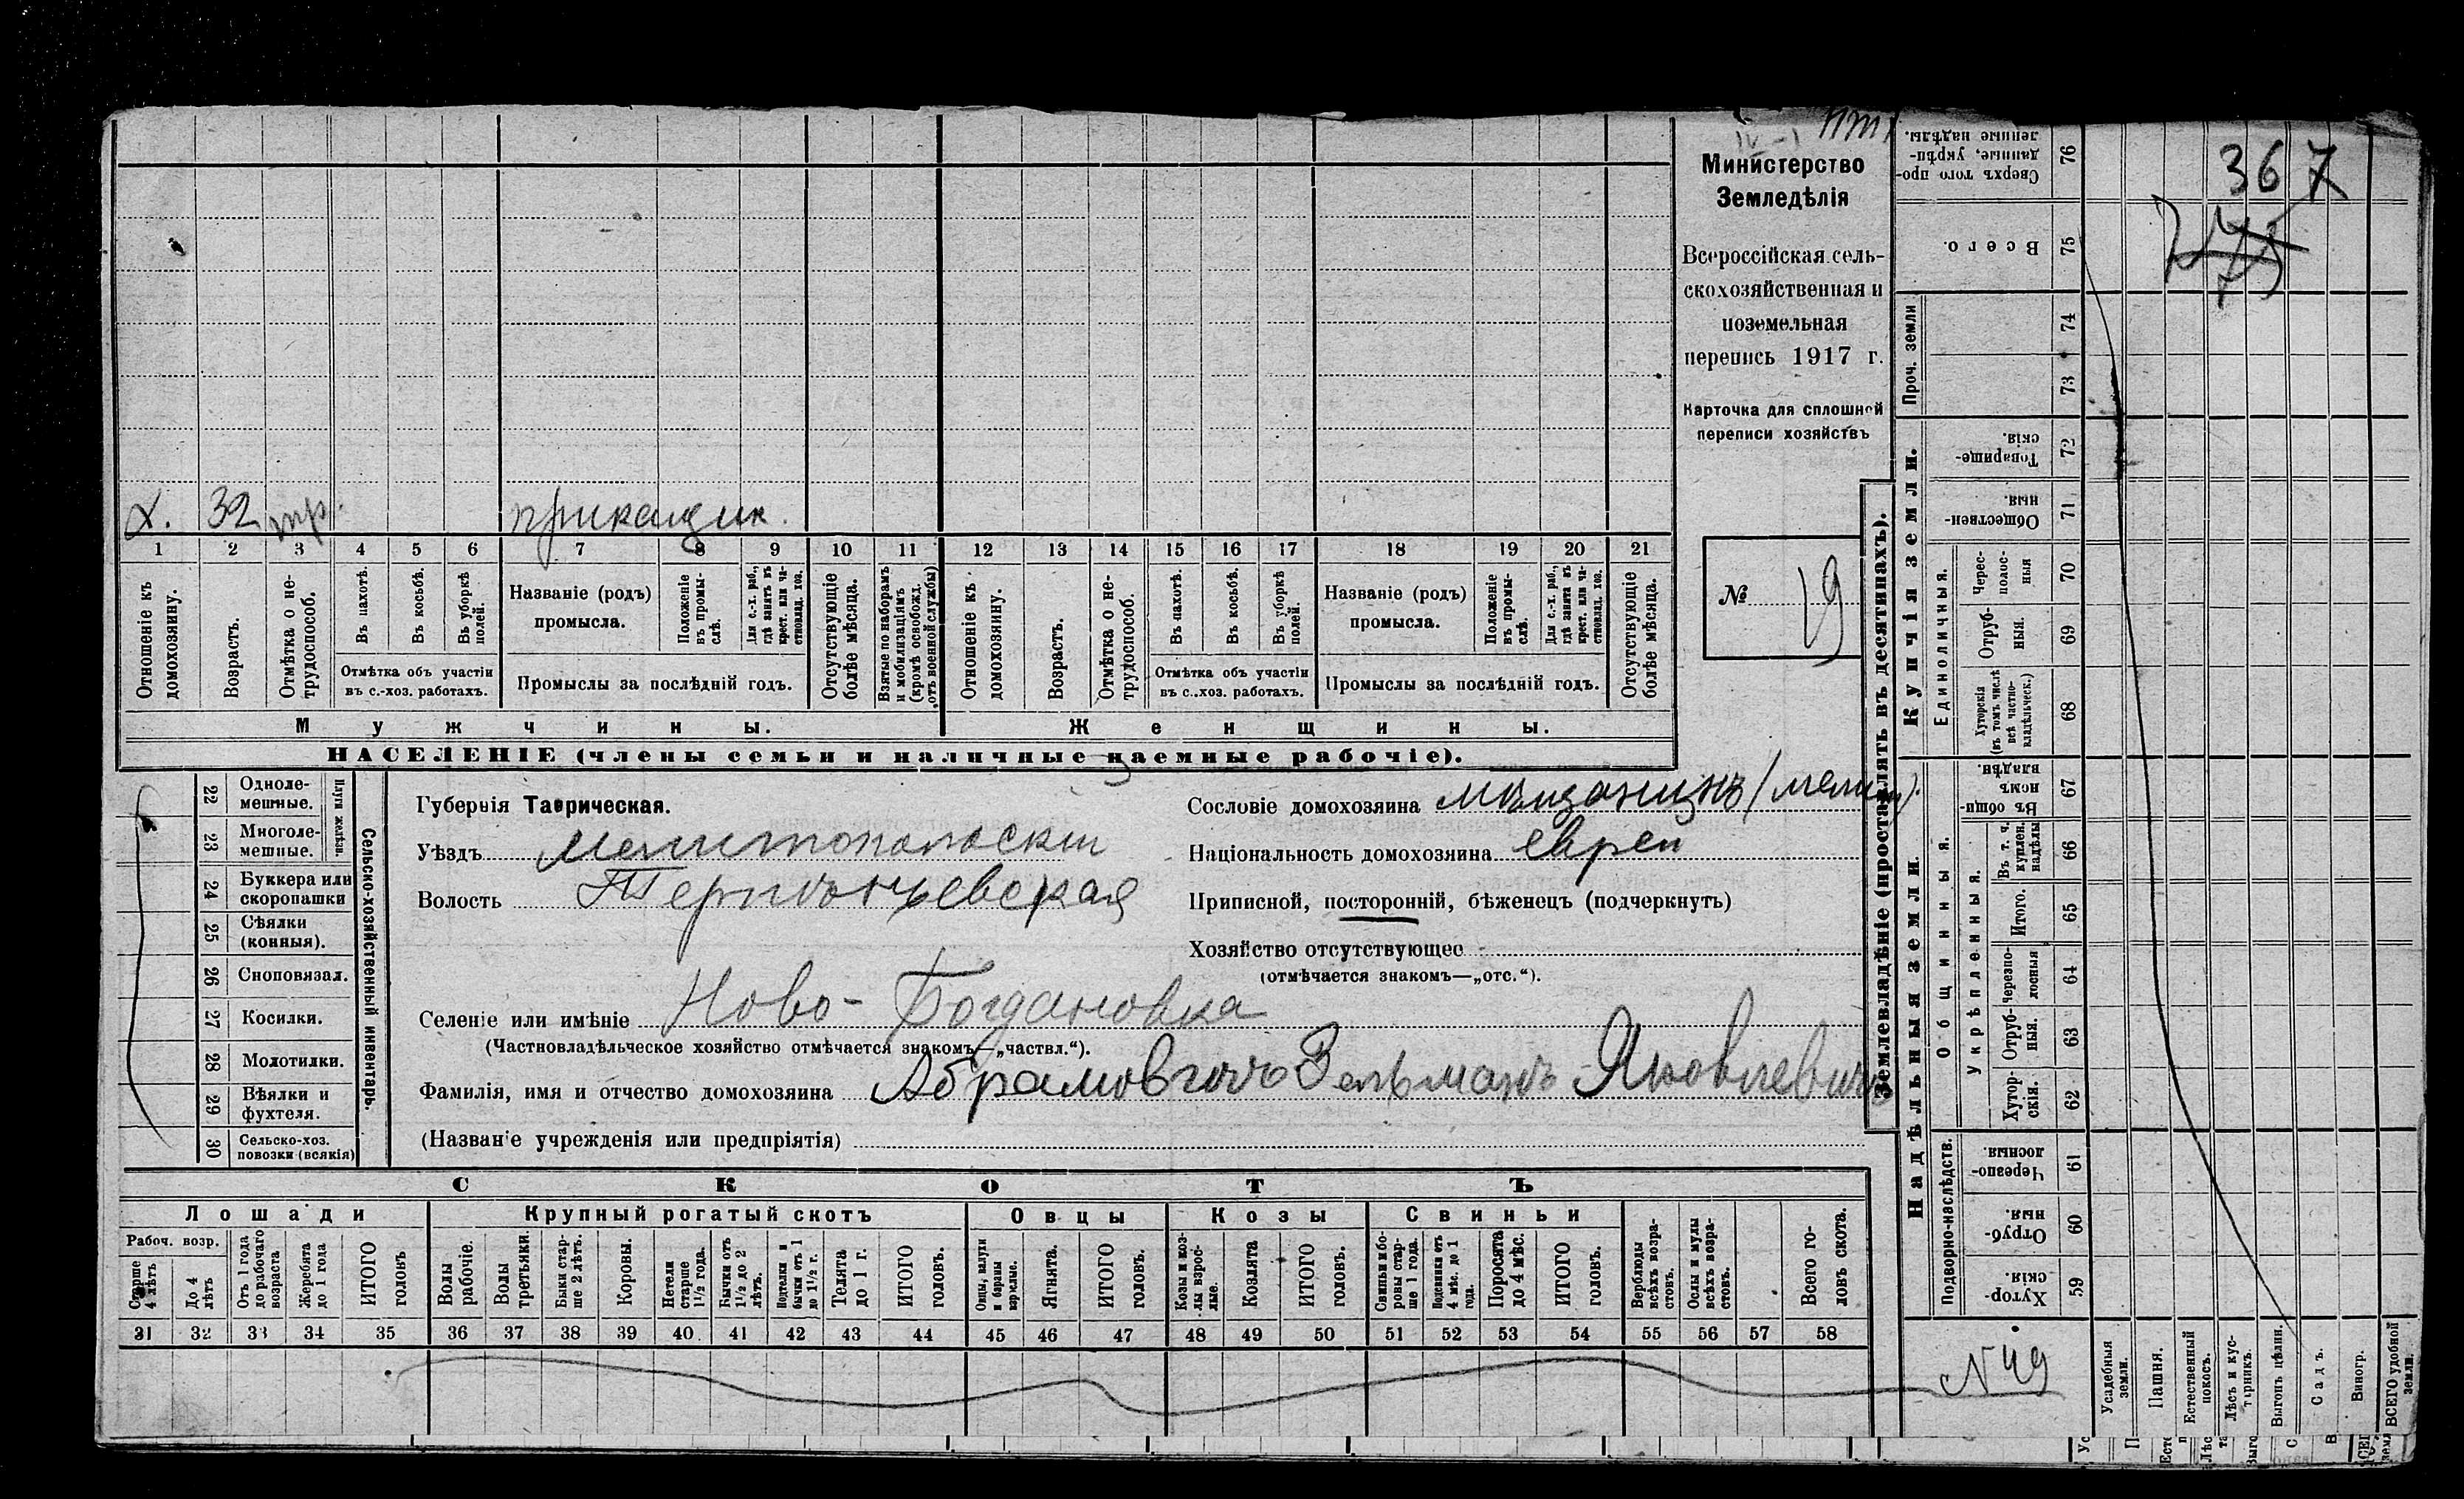 Министерство
Земледѣлія
Всероссійская сель-
скохозяйственная и
поземельная
перепись 1917 г.
Карточка для сплошной
переписи хозяйствъ
№ 19
х. 32 тр. прикащик.
1 2 3 4 5 6 7 8 9 10 11 12 13 14 15 16 17 18 19 20 21
Отношеніе къ домохозяину.
Возрастъ.
Отмѣтка о не-трудоспособ.
Въ пахотѣ.
Въ косьбѣ.
Въ уборкѣ полей.
Отмѣтка объ участіи
въ с.-хоз. работахъ.
Названіе (родъ)
промысла.
Положеніе въ промы-слѣ.
Для с.-х. раб., гдѣ занятъ въ крест. или ча-стновлад. хоз.
Промыслы за послѣдній годъ.
Отсутствующіе болѣе мѣсяца.
Взятые по наборамъ и мобилизаціямъ (кромѣ освобожд. отъ военной службы)
Отношеніе къ домохозяину.
Возрастъ.
Отмѣтка о не-трудоспособ.
Въ пахотѣ.
Въ косьбѣ.
Въ уборкѣ полей.
Отмѣтка объ участіи
въ с.-хоз. работахъ.
Названіе (родъ)
промысла.
Положеніе въ промы-слѣ.
Для с.-х. раб., гдѣ занята въ крест. или ча-стновлад. хоз.
Промыслы за послѣдній годъ.
Отсутствующіе болѣе мѣсяца.
Мужчины.
Женщины.
НАСЕЛЕНІЕ (члены семьи и наличные наемные рабочіе).
22 Одноле-мешные.
23 Многоле-мешные.
Плуги желѣзн.
24 Буккера или скоропашки
25 Сѣялки (конныя).
26 Сноповязал.
27 Косилки.
28 Молотилки.
29 Вѣялки и фухтеля.
30 Сельско-хоз. повозки (всякія)
Сельско-хозяйственный инвентарь.
Губернія Таврическая.
Уѣздъ Мелитопольскій
Волость Терпѣньевская
Селеніе или имѣніе Ново-Богдановка
(Частновладѣльческое хозяйство отмѣчается знакомъ—„частвл.“).
Фамилія, имя и отчество домохозяина Абрамовичъ Зельманъ Яковлевичъ
(Названіе учрежденія или предпріятія)
Сословіе домохозяина мѣщанинъ
Національность домохозяина еврей
Приписной, посторонній, бѣженецъ (подчеркнуть)
Хозяйство отсутствующее
(отмѣчается знакомъ—„отс.“).
СКОТЪ
Лошади
Крупный рогатый скотъ
Овцы
Козы
Свиньи
Рабоч. возр.
Старше 4 лѣтъ
До 4 лѣтъ
Отъ 1 года до рабочаго возраста
Жеребята до 1 года
ИТОГО головъ
Волы рабочіе.
Волы третьяки.
Быки стар-ше 2 лѣтъ.
Коровы.
Нетели старше 1½ года.
Бычки отъ 1½ до 2 лѣтъ.
Подтелки и бычки отъ 1 до 1½ г.
Телята до 1 г.
ИТОГО головъ.
Овцы, валухи и бараны взрослые.
Ягнята.
ИТОГО головъ.
Козы и коз-лы взрос-лые.
Козлята
ИТОГО головъ.
Свиньи и бо-ровы стар-ше 1 года.
Подсвинки отъ 4 мѣс. до 1 года.
Поросята до 4 мѣс.
ИТОГО головъ.
Верблюды всѣхъ возра-стовъ.
Ослы и мулы всѣхъ возра-стовъ.
Всего го-ловъ скота.
31 32 33 34 35 36 37 38 39 40 41 42 43 44 45 46 47 48 49 50 51 52 53 54 55 56 57 58
Землевладѣніе (проставлять въ десятинахъ).
367
76 Сверхъ того про-данные, укрѣп-ленные надѣлы.
75 Всего.
74
73
Проч. земли
Купчія земли.
72 Товарище-скія.
71 Обществен-ныя.
Единоличныя.
70 Черес-полос-ныя
69 Отруб-ныя.
68 Хуторскія (въ томъ числѣ всѣ частно-владѣльческ.)
Надѣльныя земли.
Общинныя.
67 Въ общи-номъ владѣн.
Укрѣпленныя.
66 Въ т. ч. куплен. надѣлы
65 Итого.
64 Черезпо-лосныя
63 Отруб-ныя.
62 Хутор-скія.
Подворно-наслѣдств.
61 Черезпо-лосныя.
60 Отруб-ныя.
59 Хутор-скія.
N 49
Усадебныя земли.
Пашня.
Естественный покосъ.
Лѣсъ и кус-тарникъ.
Выгонъ цѣлин.
Садъ.
Виногр.
ВСЕГО удобной земли.